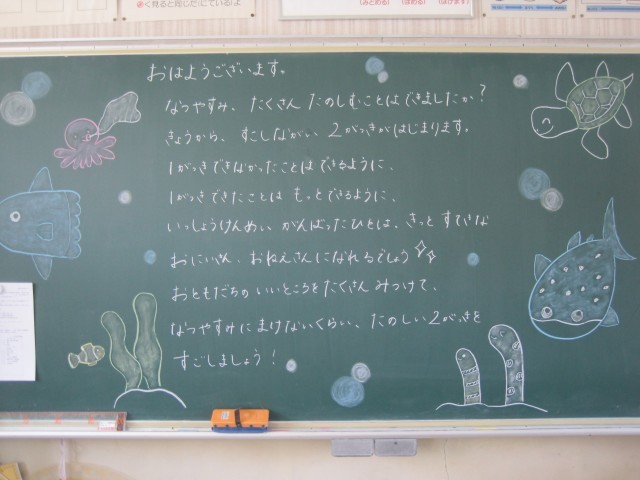 く見ると同じだ」にている」よ
(みとめる) (ほめる) (はげます)
おはようございます。
なつやすみ、たくさん たのしむことはできましたか?
きょうから、すこしながい 2がっきがはじまります。
1がっきできなかったことは できるように、
1がっきできたことは もっとできるように、
いっしょうけんめい がんばったひとは、きっと すてきな
おにいさん、おねえさんになれるでしょう
おともだちの いいところをたくさん みつけて、
なつやすみにまけないくらい、たのしい2がっきを
すごしましょう!